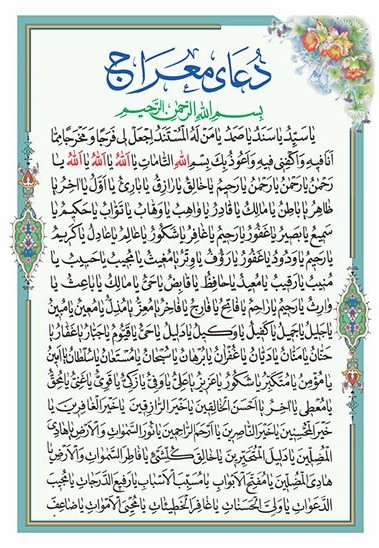 دُعای معراج
بِسمِ اللهِ الرَّحمنِ الرَّحیمِ
یا سَیِّدُ یا سَنَدُ یا صَمَدُ یا مَن لَهُ المُستَنَدُ اِجعَل لی فَرَجاً وَ مَخرَجاً مِمّا
اَنَا فیهِ وَ اکفِنی فیهِ وَ اَعُوذُ بِکَ بِسمِ اللهِ التّامّاتِ یا اَللهُ یا اَللهُ یا اَللهُ یا
رَحمنُ یا رَحمنُ یا رَحمنُ یا رَحیمُ یا خالِقُ یا رازِقُ یا بارِئُ یا اَوَّلُ یا اخِرُ یا
ظاهِرُ یا باطِنُ یا مالِکُ یا قادِرُ یا واهِبُ یا وَهّابُ یا تَوّابُ یا حَکیمُ یا
سَمیعُ یا بَصیرُ یا غَفُورُ یا رَحیمُ یا غافِرُ یا شَکُورُ یا عالِمُ یا عادِلُ یا کَریمُ
یا رَحیمُ یا وَدُودُ یا غَفُورُ یا رَؤُفُ یا وِترُ یا مُغیثُ یا مُجیبُ یا حَبیبُ یا
مُنیبُ یا رَقیبُ یا مَعیذُ یا حافِظُ یا قابِضُ یا حَیُّ یا مالِکُ یا باعِثُ یا
وارِثُ یا رَحیمُ یا راحِمُ یا فاتِحُ یا فارِجُ یا فاخِرُ یا مُعِزُّ یا مُذِلُّ یا مُعینُ یا مُبینُ
یا جَلیلُ یا جَمیلُ یا کَفیلُ یا وَکیلُ یا دَلیلُ یا حَیُّ یا قَیُّومُ یا جَبّارُ یا غَفّارُ یا
حَنّانُ یا مَنّانُ یا دَیّانُ یا غُفرانُ یا بُرهانُ یا سُبحانُ یا مُستَعانُ یا سُلطانُ یا اَمینُ
یا مُؤمِنُ یا مُتَکَبِّرُ یا شَکُورُ یا عَزیزُ یا عَلِیُّ یا وَفِیُّ یا زَکِیُّ یا قَوِیُّ یا غَنِیُّ یا مُحِقُّ
یا مُعطی یا اخِرُ یا اَحسَنَ الخالِقینَ یا خَیرَ الرّازِقینَ یا خَیرَ الغافِرینَ یا
خَیرَ المُحسِنینَ یا خَیرَ النّاصِرینَ یا اَرحَمَ الرّاحِمینَ یا نُورَ السَّمواتِ وَ الاَرضِ یا هادِیَ
المُضِلّینَ یا دَلیلَ المُتَحَیِّرینَ یا خالِقَ کُلِّ شَیءٍ یا فاطِرَ السَّمواتِ وَ الاَرضِ یا
هادِیَ المُضِلّینَ یا مُفَتِّحَ الاَبوابِ یا مُسَبِّبَ الاَسبابِ یا رَفیعَ الدَّرَجاتِ یا مُجیبَ
الدَّعَواتِ یا وَلِیَّ الحَسَناتِ یا غافِرَ الخَطیئاتِ یا مُحیِیَ الاَمواتِ یا ضاعِفَ